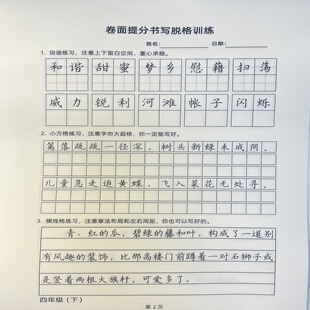 卷面提分书写脱格训练
姓名: 日期:
1. 词语练习，注意上下留白空间，重心求稳。
和谐 甜蜜 梦乡 慰藉 扫荡
威力 锐利 河滩 帐子 闪烁
2. 小方格练习，注意字勿大超格，你一定能写好。
篱落疏疏一径深，树头新绿未成阴。
儿童急走追黄蝶，飞入菜花无处寻。
3. 横线格练习，注意章法布局和左右间距，你也可以写好的。
青、红的瓜，碧绿的藤和叶，构成了一道别
有风趣的装饰，比那高楼门前蹲着一对石狮子或
是竖着两根大旗杆，可爱多了。
四年级（下）
第 2 页